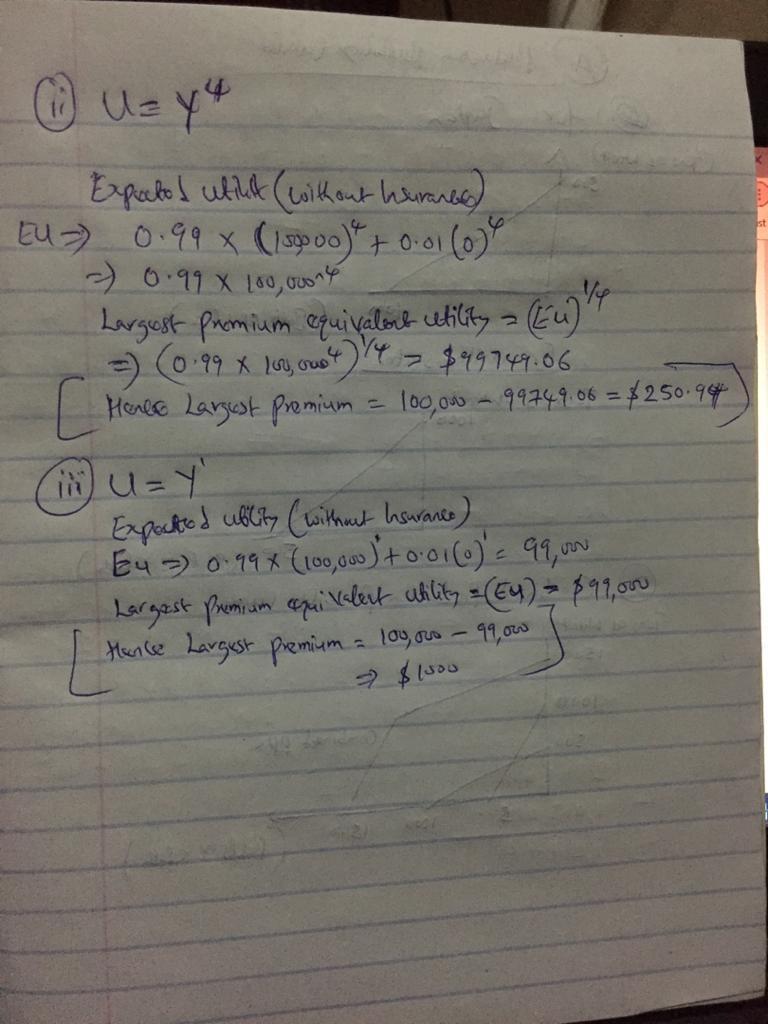 (ii) U = Y^4
Expected utilit (without Insurance)
EU => 0.99 × (100,000)^4 + 0.01 (0)^4
=> 0.99 × 100,000^4
Largest premium equivalent utility = (EU)^1/4
=> (0.99 × 100,000^4)^1/4 = $99749.06
Hence Largest premium = 100,000 - 99749.06 = $250.94
(iii) U = Y^1
Expected utility (without Insurance)
EU => 0.99 × (100,000)^1 + 0.01 (0)^1 = 99,000
Largest premium equivalent utility = (EU) = $99,000
Hence Largest premium = 100,000 - 99,000
=> $1000